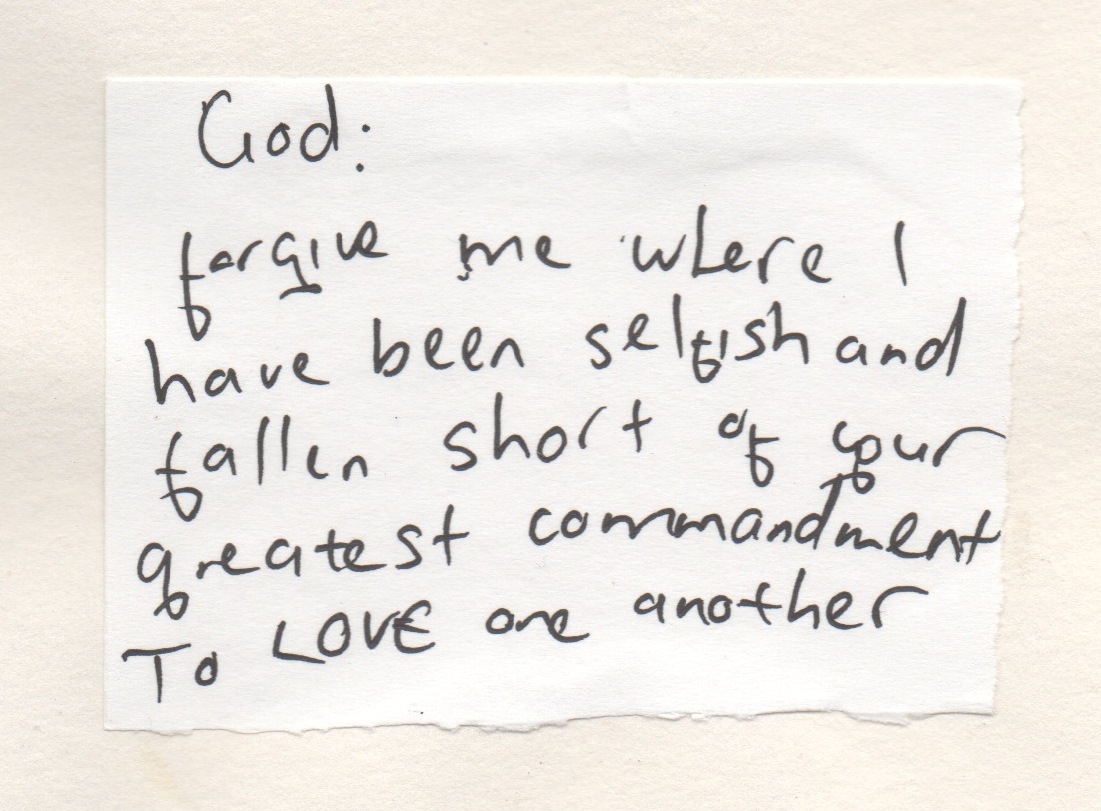 God:
forgive me where I
have been selfish and
fallen short of your
greatest commandment
To LOVE one another